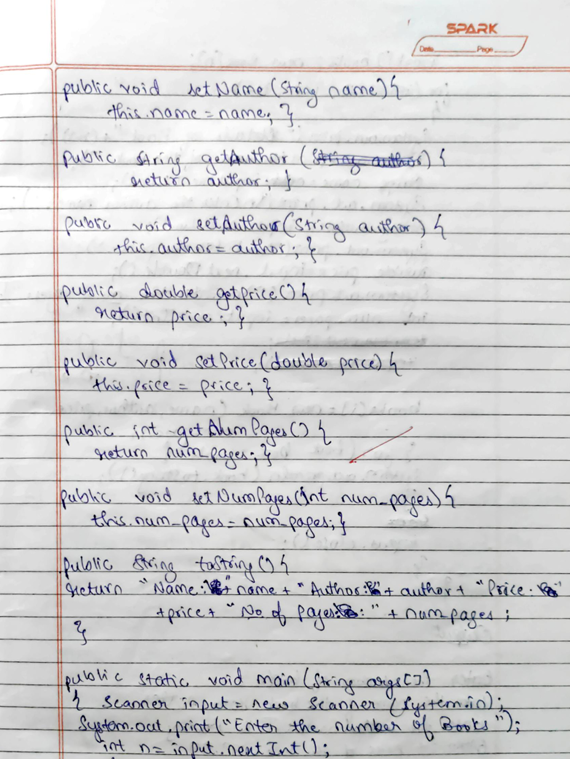 SPARK
Date Page
public void setName (String name) {
this.name = name; }
public String getAuthor () {
return author; }
public void setAuthor (String author) {
this.author = author; }
public double getprice () {
return price; }
public void setPrice (double price) {
this.price = price; }
public int getNumPages () {
return num_pages; }
public void setNumPages (int num_pages) {
this.num_pages = num_pages; }
public String toString () {
return "Name: " + name + "Author: " + author + "Price:
+ price + "No. of pages: " + num pages ;
}
public static void main (String args[])
{ Scanner input = new Scanner (System.in);
System.out.print ("Enter the number of Books");
int n = input.nextInt();